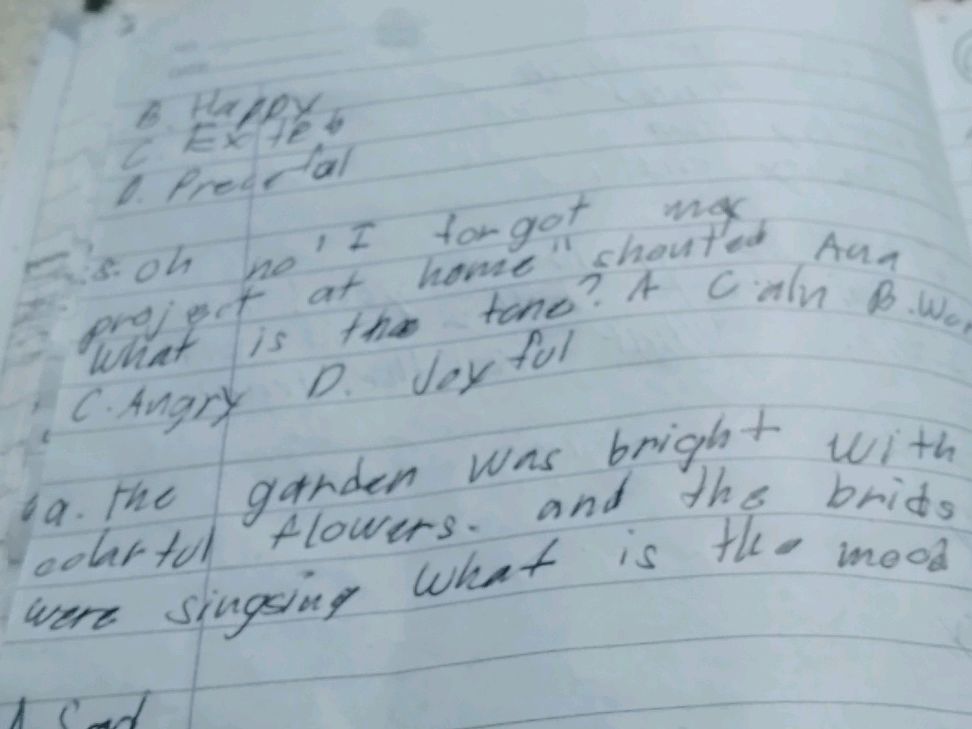 B. Happy
C. Ex
D.
5. oh no' I forgot my
project at home" shouted Ana
What is the tone? A Caln B. Wor
C. Angry D. Joyful
6a. The garden was bright with
colarful flowers. and the brids
were singsing What is the mood
A Sad